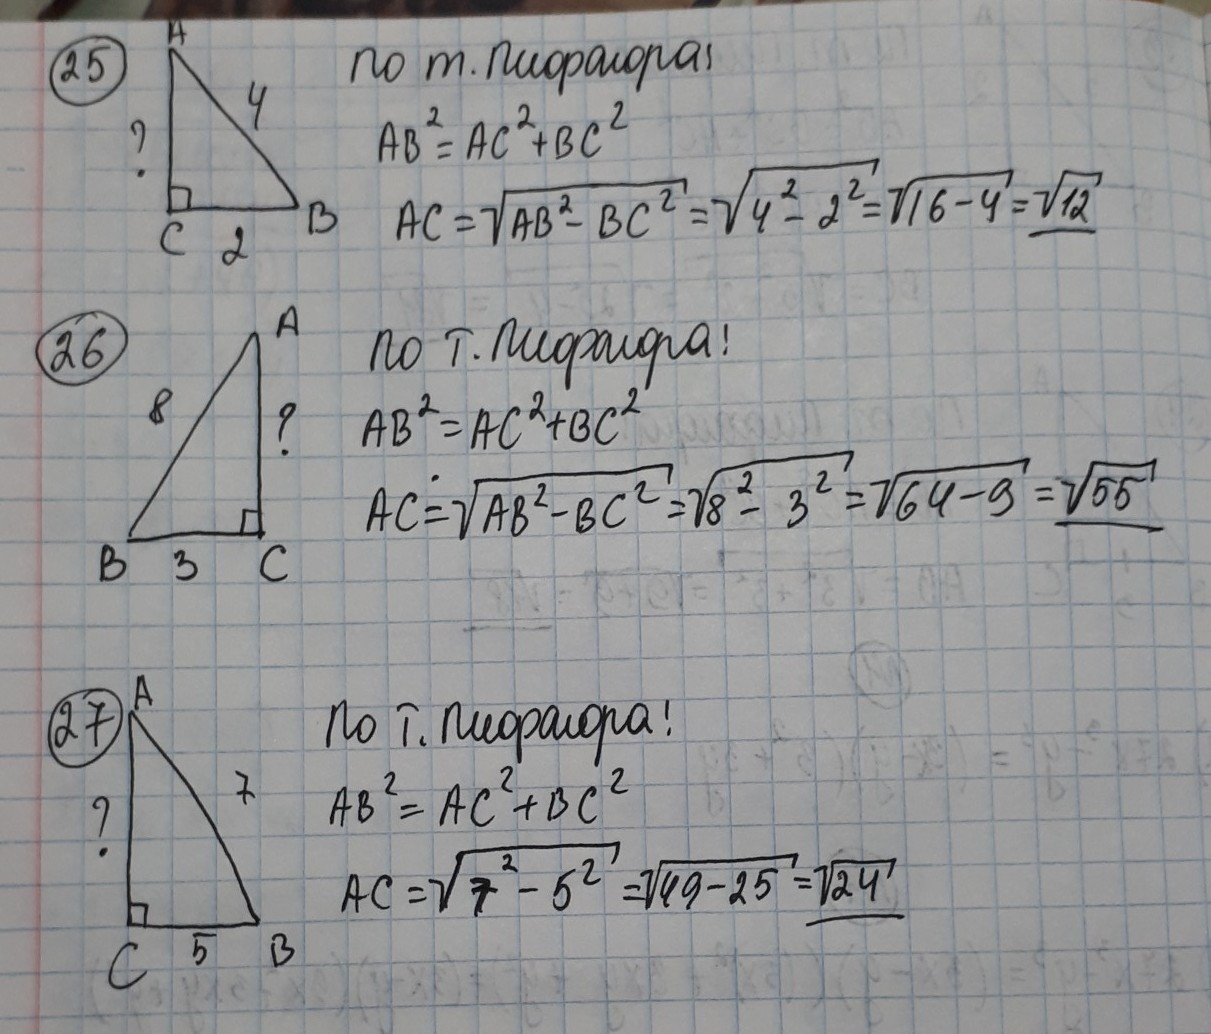 25
A
4
?
C
2
B
По т. Пифагора!
AB² = AC² + BC²
AC = √AB² - BC² = √4² - 2² = √16 - 4 = √12
26
A
8
?
B
3
C
По т. Пифагора!
AB² = AC² + BC²
AC = √AB² - BC² = √8² - 3² = √64 - 9 = √55
27
A
7
?
C
5
B
По т. Пифагора!
AB² = AC² + BC²
AC = √7² - 5² = √49 - 25 = √24